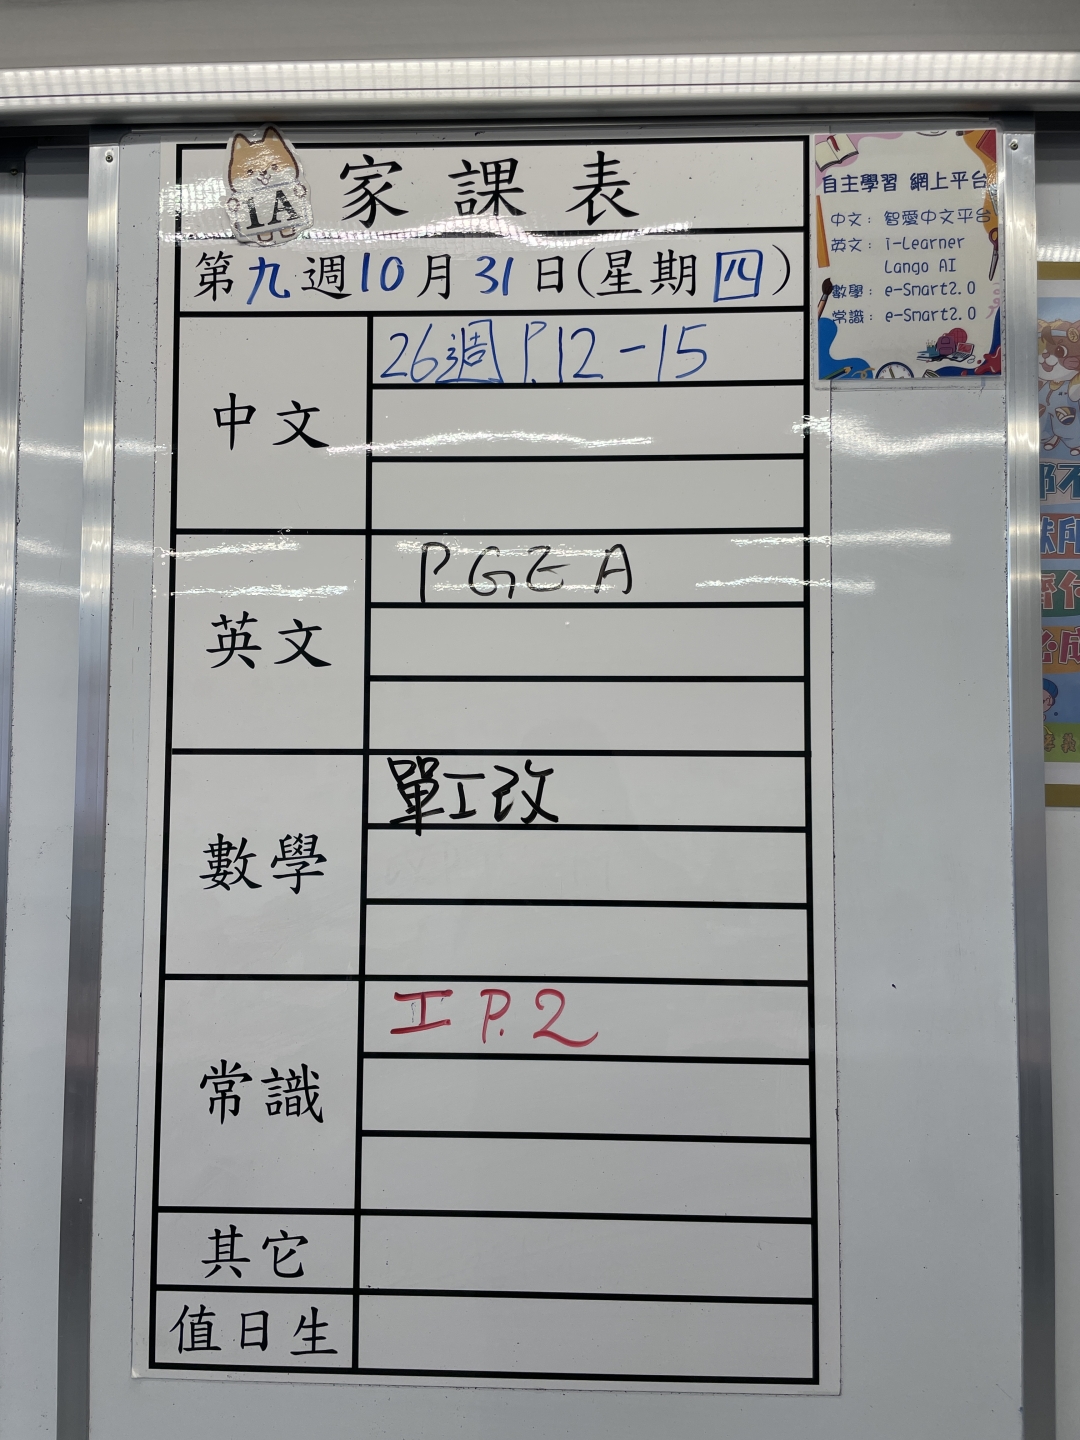 1A
家課表
第九週10月31日(星期四)
中文
26週 P.12-15
英文
PGEA
數學
單工改
常識
工 P.2
其它
值日生
自主學習 網上平台
中文：智愛中文平台
英文：i-Learner
Lango AI
數學：e-Smart2.0
常識：e-Smart2.0